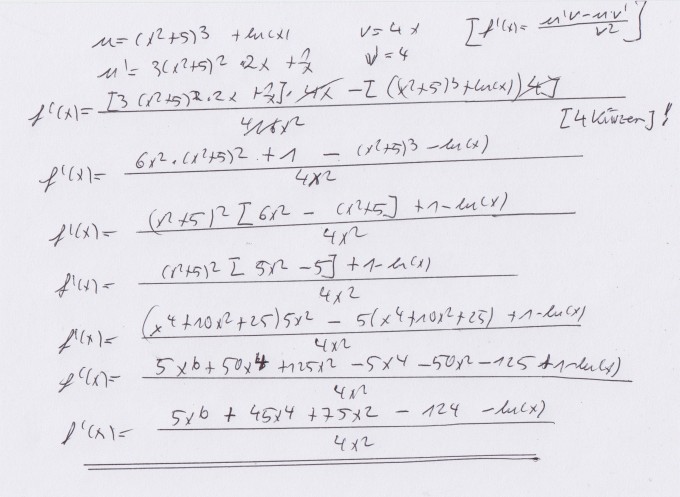 u = (x²+5)³ + ln(x)    v = 4x    [f'(x) = (u'v - u·v')/v²]
u' = 3(x²+5)²·2x + 1/x    v' = 4
f'(x) = ([3(x²+5)²·2x + 1/x]·4x - [((x²+5)³ + ln(x))4])/(4 16x²)    [4 kürzen]!
f'(x) = (6x²·(x²+5)² + 1 - (x²+5)³ - ln(x))/(4x²)
f'(x) = ((x²+5)² [6x² - (x²+5] + 1 - ln(x))/(4x²)
f'(x) = ((x²+5)² [5x² - 5] + 1 - ln(x))/(4x²)
f'(x) = ((x⁴+10x²+25)5x² - 5(x⁴+10x²+25) + 1 - ln(x))/(4x²)
f'(x) = (5x⁶ + 50x⁴ + 125x² - 5x⁴ - 50x² - 125 + 1 - ln(x))/(4x²)
f'(x) = (5x⁶ + 45x⁴ + 75x² - 124 - ln(x))/(4x²)